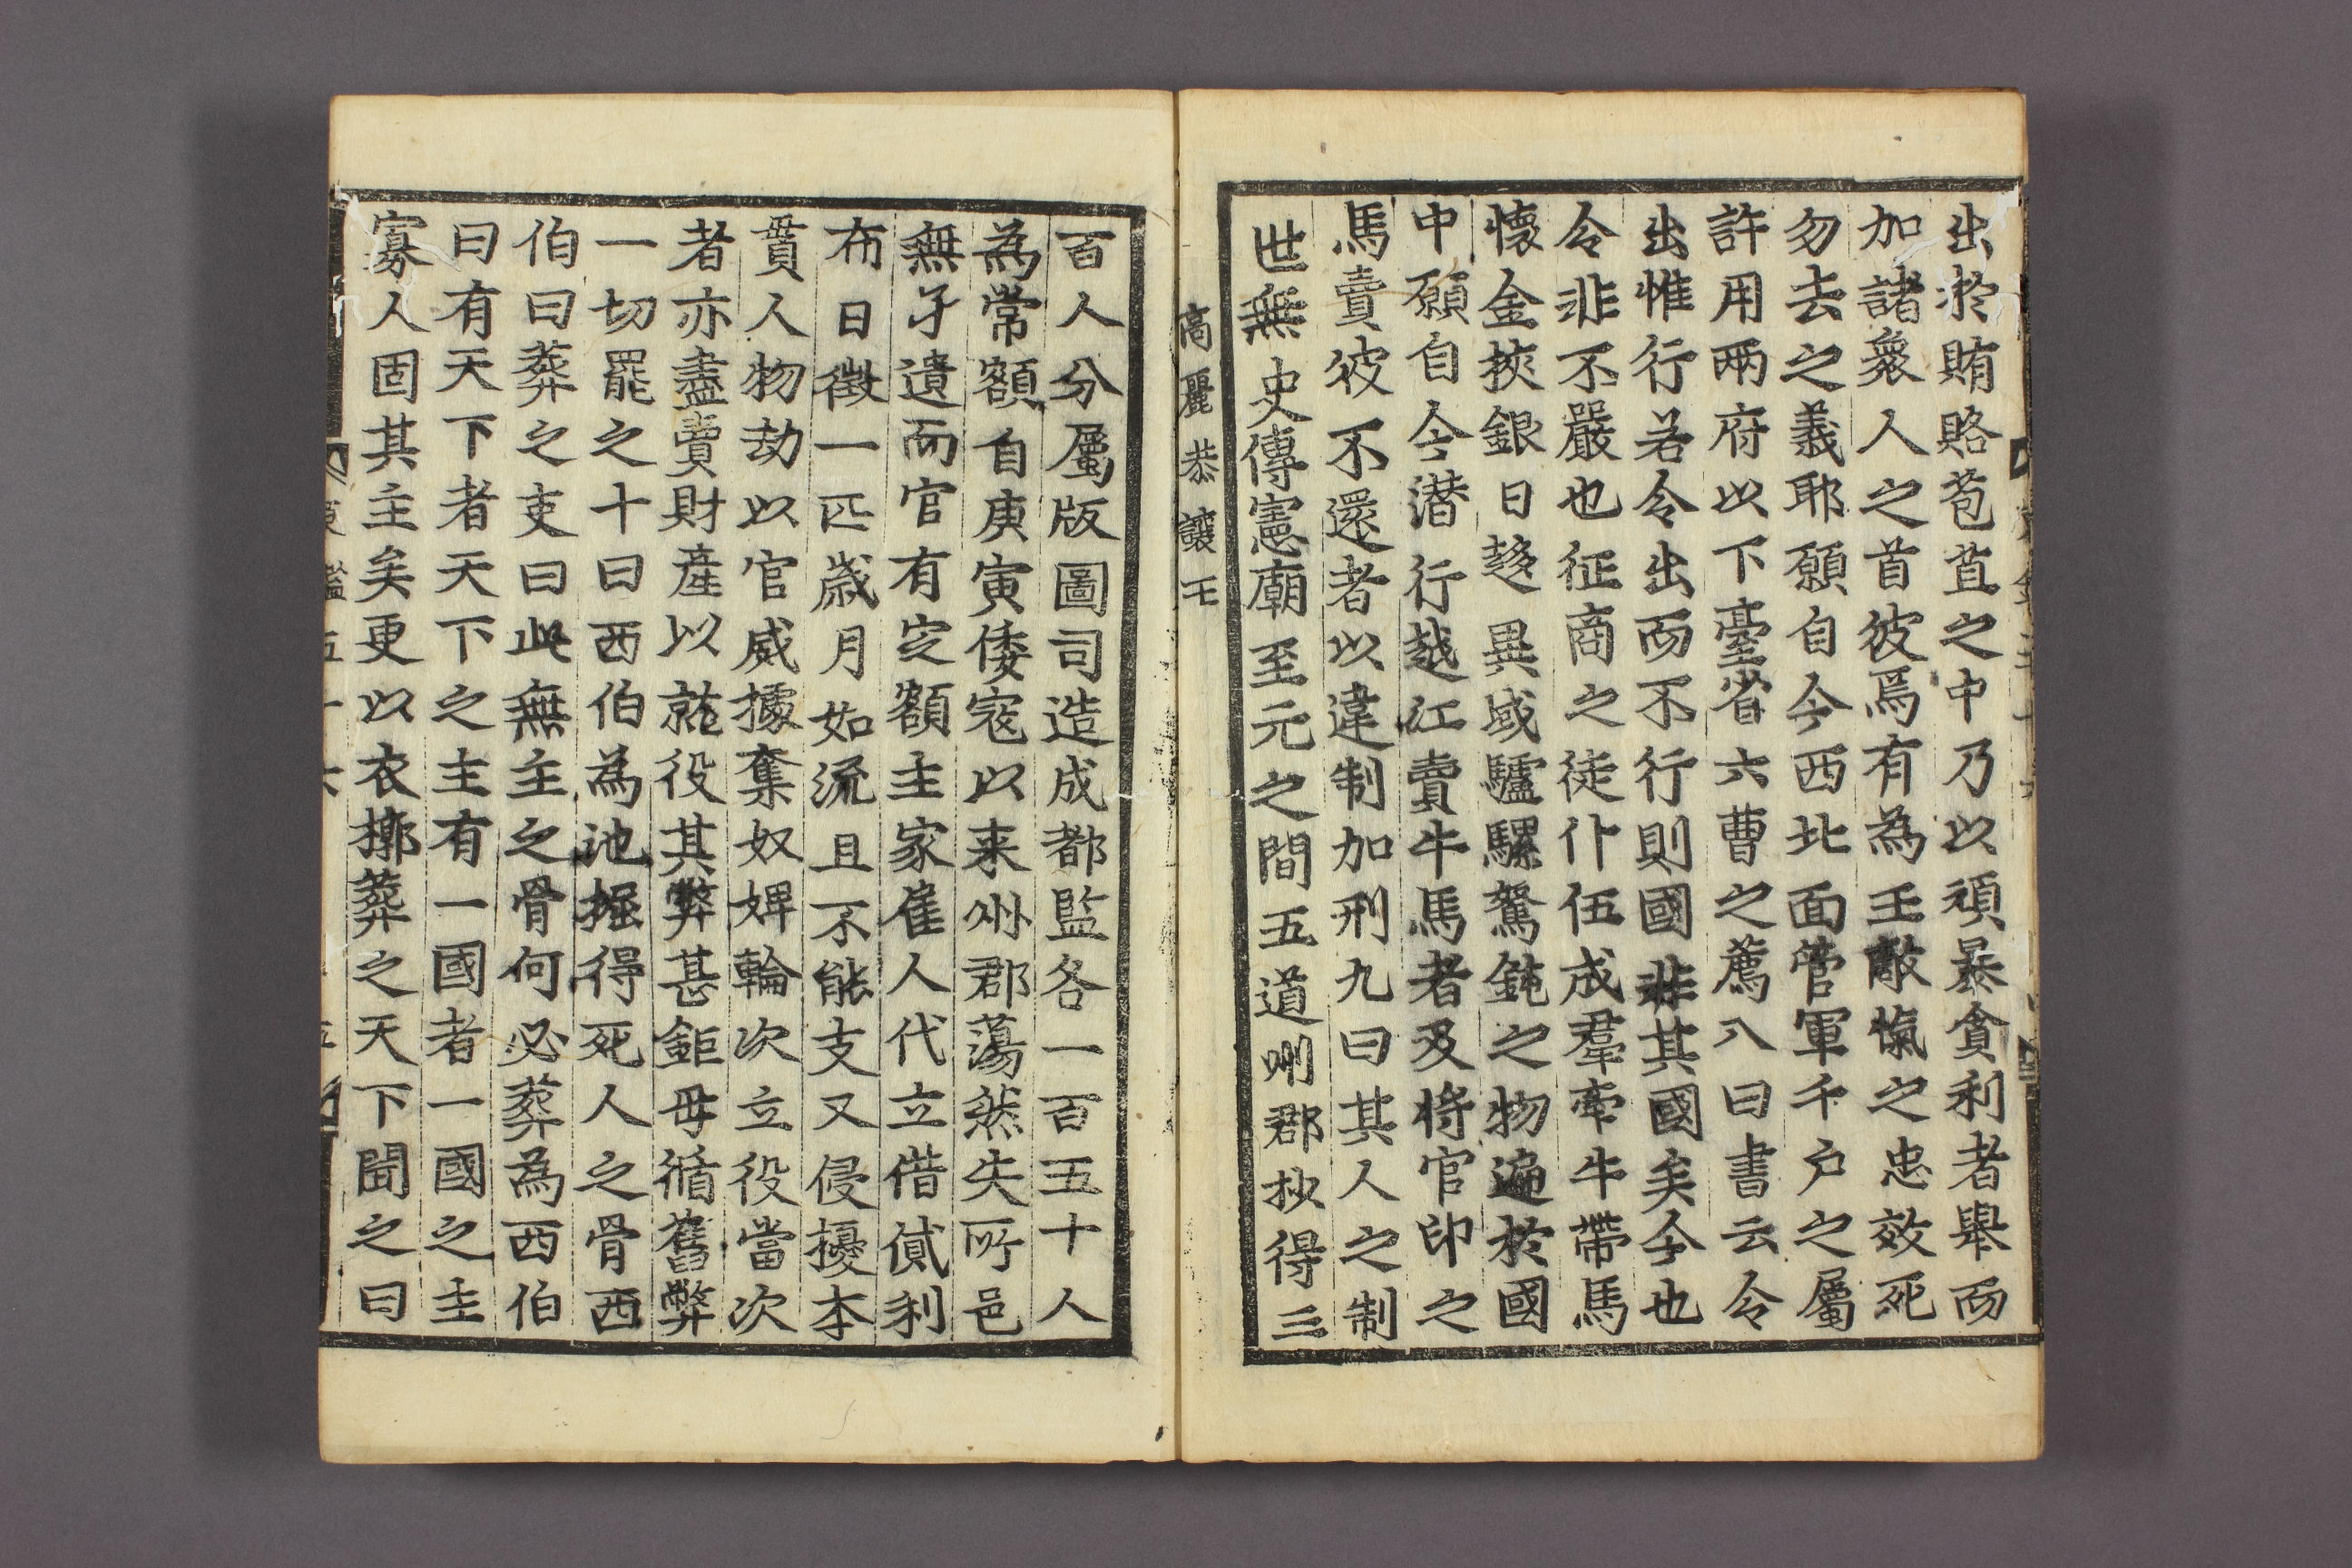 出於賄賂苞苴之中乃以頑暴貪利者擧而
加諸衆人之首彼焉有為王敵愾之忠效死
勿去之義耶願自今西北面管軍千户之屬
許用兩府以下臺省六曹之薦八曰書云令
出惟行若令出而不行則國非其國矣今也
令非不嚴也征商之徒什伍成羣牽牛帶馬
懷金挾銀日趍異域驢騾駑鈍之物遍於國
中願自今潜行越江賣牛馬者及将官印之
馬賣彼不還者以違制加刑九曰其人之制
世無史傳憲廟至元之間五道州郡抄得三
高麗恭讓王
百人分屬版圖司造成都監各一百五十人
為常額自庚寅倭寇以来州郡蕩然失所邑
無孑遺而官有定額主家雇人代立借貸利
布日徵一匹歳月如流且不能支又侵擾本
貫人物劫以官威據奪奴婢輪次立役當次
者亦盡賣財產以就役其弊甚鉅毋循舊弊
一切罷之十曰西伯為池掘得死人之骨西
伯曰葬之吏曰此無主之骨何必葬為西伯
曰有天下者天下之主有一國者一國之主
寡人固其主矣更以衣槨葬之天下聞之曰
鑑五十六